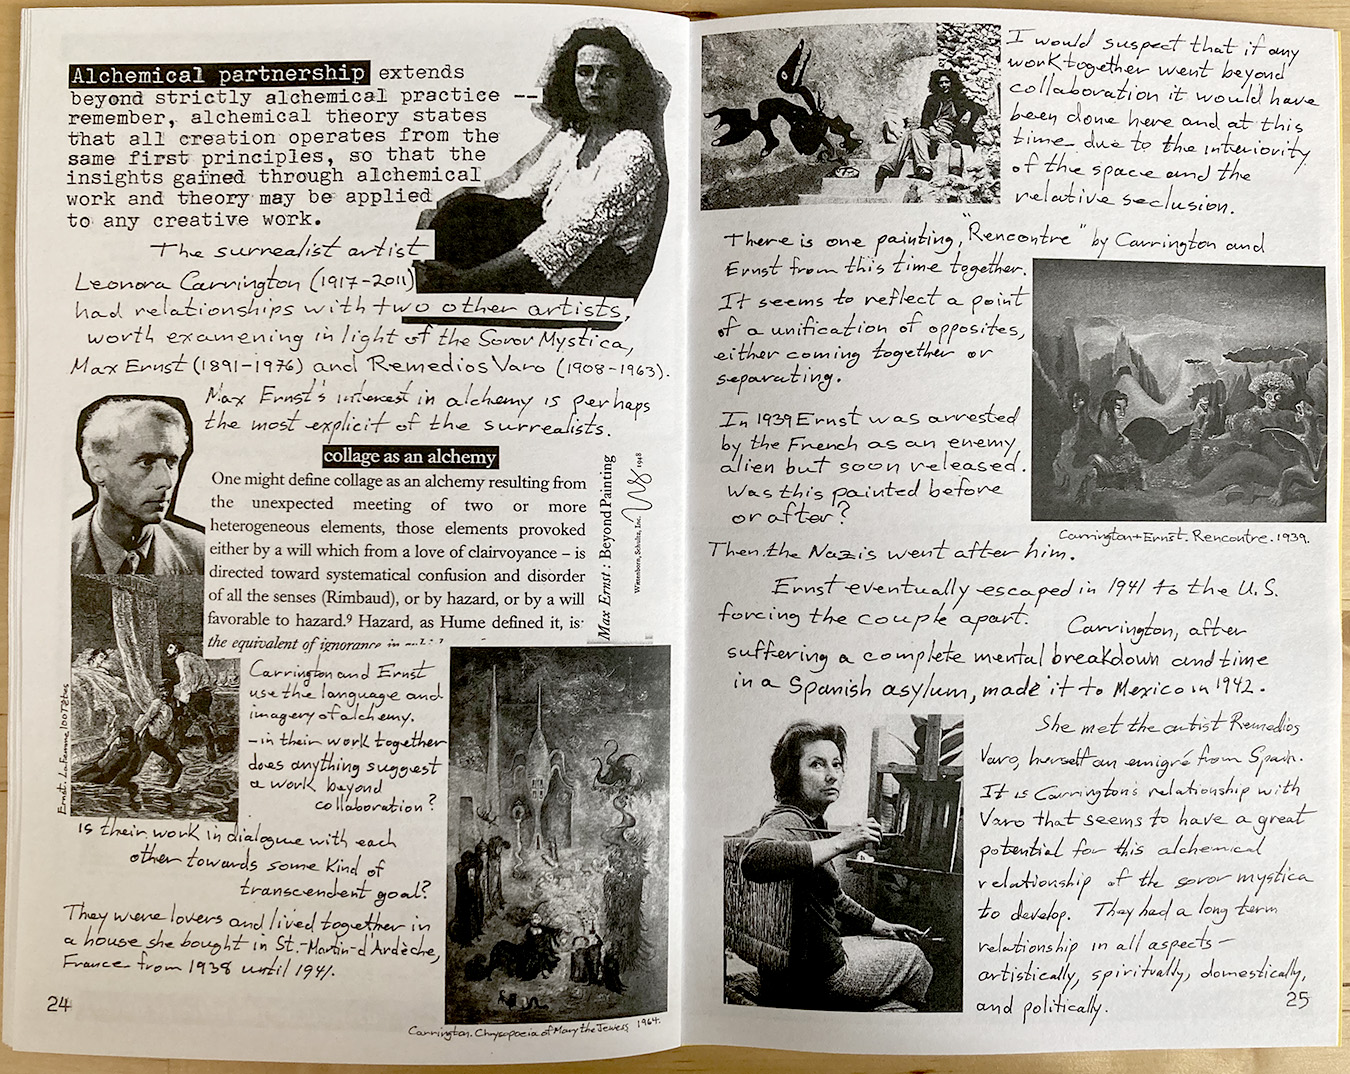 Alchemical partnership extends
beyond strictly alchemical practice --
remember, alchemical theory states
that all creation operates from the
same first principles, so that the
insights gained through alchemical
work and theory may be applied
to any creative work.
The surrealist artist
Leonora Carrington (1917-2011)
had relationships with two other artists,
worth examening in light of the Soror Mystica,
Max Ernst (1891-1976) and Remedios Varo (1908-1963).
Max Ernst's interest in alchemy is perhaps
the most explicit of the surrealists.
collage as an alchemy
One might define collage as an alchemy resulting from
the unexpected meeting of two or more
heterogeneous elements, those elements provoked
either by a will which from a love of clairvoyance – is
directed toward systematical confusion and disorder
of all the senses (Rimbaud), or by hazard, or by a will
favorable to hazard.⁹ Hazard, as Hume defined it, is:
the equivalent of ignorance in
Max Ernst : Beyond Painting
Wittenborn, Schultz, Inc. 1948
Ernst. La Femme 100 Têtes
Carrington and Ernst
use the language and
imagery of alchemy.
-in their work together
does anything suggest
a work beyond
collaboration?
Is their work in dialogue with each
other towards some kind of
transcendent goal?
They were lovers and lived together in
a house she bought in St.-Martin-d'Ardèche,
France from 1938 until 1941.
24
Carrington. Chrysopoeia of Mary the Jewess 1964.
I would suspect that if any
work together went beyond
collaboration it would have
been done here and at this
time due to the interiority
of the space and the
relative seclusion.
There is one painting, "Rencontre" by Carrington and
Ernst from this time together.
It seems to reflect a point
of a unification of opposites,
either coming together or
separating.
In 1939 Ernst was arrested
by the French as an enemy
alien but soon released.
Was this painted before
or after?
Carrington + Ernst. Rencontre. 1939.
Then the Nazis went after him.
Ernst eventually escaped in 1941 to the U.S.
forcing the couple apart.
Carrington, after
suffering a complete mental breakdown and time
in a Spanish asylum, made it to Mexico in 1942.
She met the artist Remedios
Varo, herself an emigré from Spain.
It is Carrington's relationship with
Varo that seems to have a great
potential for this alchemical
relationship of the soror mystica
to develop. They had a long term
relationship in all aspects—
artistically, spiritually, domestically,
and politically.
25